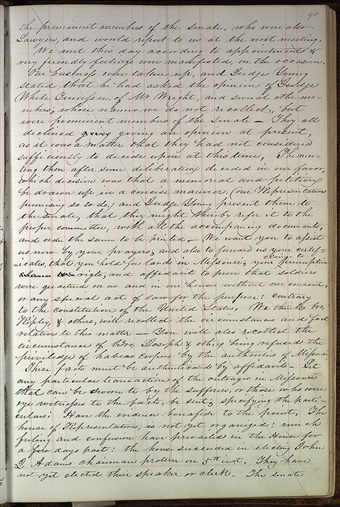 90
the prominent members of the Senate, who were also
Lawyers, and would report to us at the next meeting.
We met this day according to appointment &
very friendly feelings were manifested, on the occasion.
Our business was taken up, and Judge Young
stated that he had asked the opinion of Judge
White Tennessee of Mr Wright, and several other mem-
bers, whose names we do not recollect, but
were prominent members of the Senate— They all
declined giving an opinion at present,
as it was a matter that they had not considered
sufficiently to decide upon at this time, The mee-
ting then after some deliberation decided in our favor,
which decision was that a memorial and petition
be drawn up in a concise manner, (our Representative
promising so to do,) and Judge Young present them to
the Senate, that they might thereby refer it to the
proper committee, with all the accompanying documents,
and order the same to be printed— We want you to assist
us now by your prayers, and also to forward us your certif-
icates, that you hold for lands in Missouri, your
and affidavit to prove that soldiers
were quartered on us and in our houses without our consent,
or any special act of law for the purpose; contrary
to the constitution of the United States, We think Bro
Ripley, & others, will recollect the circumstance and fact
relative to this matter— You will also recollect the
circumstance of Bro Joseph & others being refused the
priviledge of habeas corpus by the authorities of Missouri
These facts must be authenticated by affidavits— Let
any particular transaction of the outrages in Missouri
that can be sworn to by the sufferers, or those who were
eye witnesses to the facts, be sent; specifying the parti-
culars: Have the evidence bonafide to the point, The
house of Representatives, is not yet organized; much
feeling and confusion have prevailed in the House for
a few days past: the house succeeded in electing John
Q. Adams chairman protem on 5th inst. They have
not yet elected their speaker or clerk— The senate